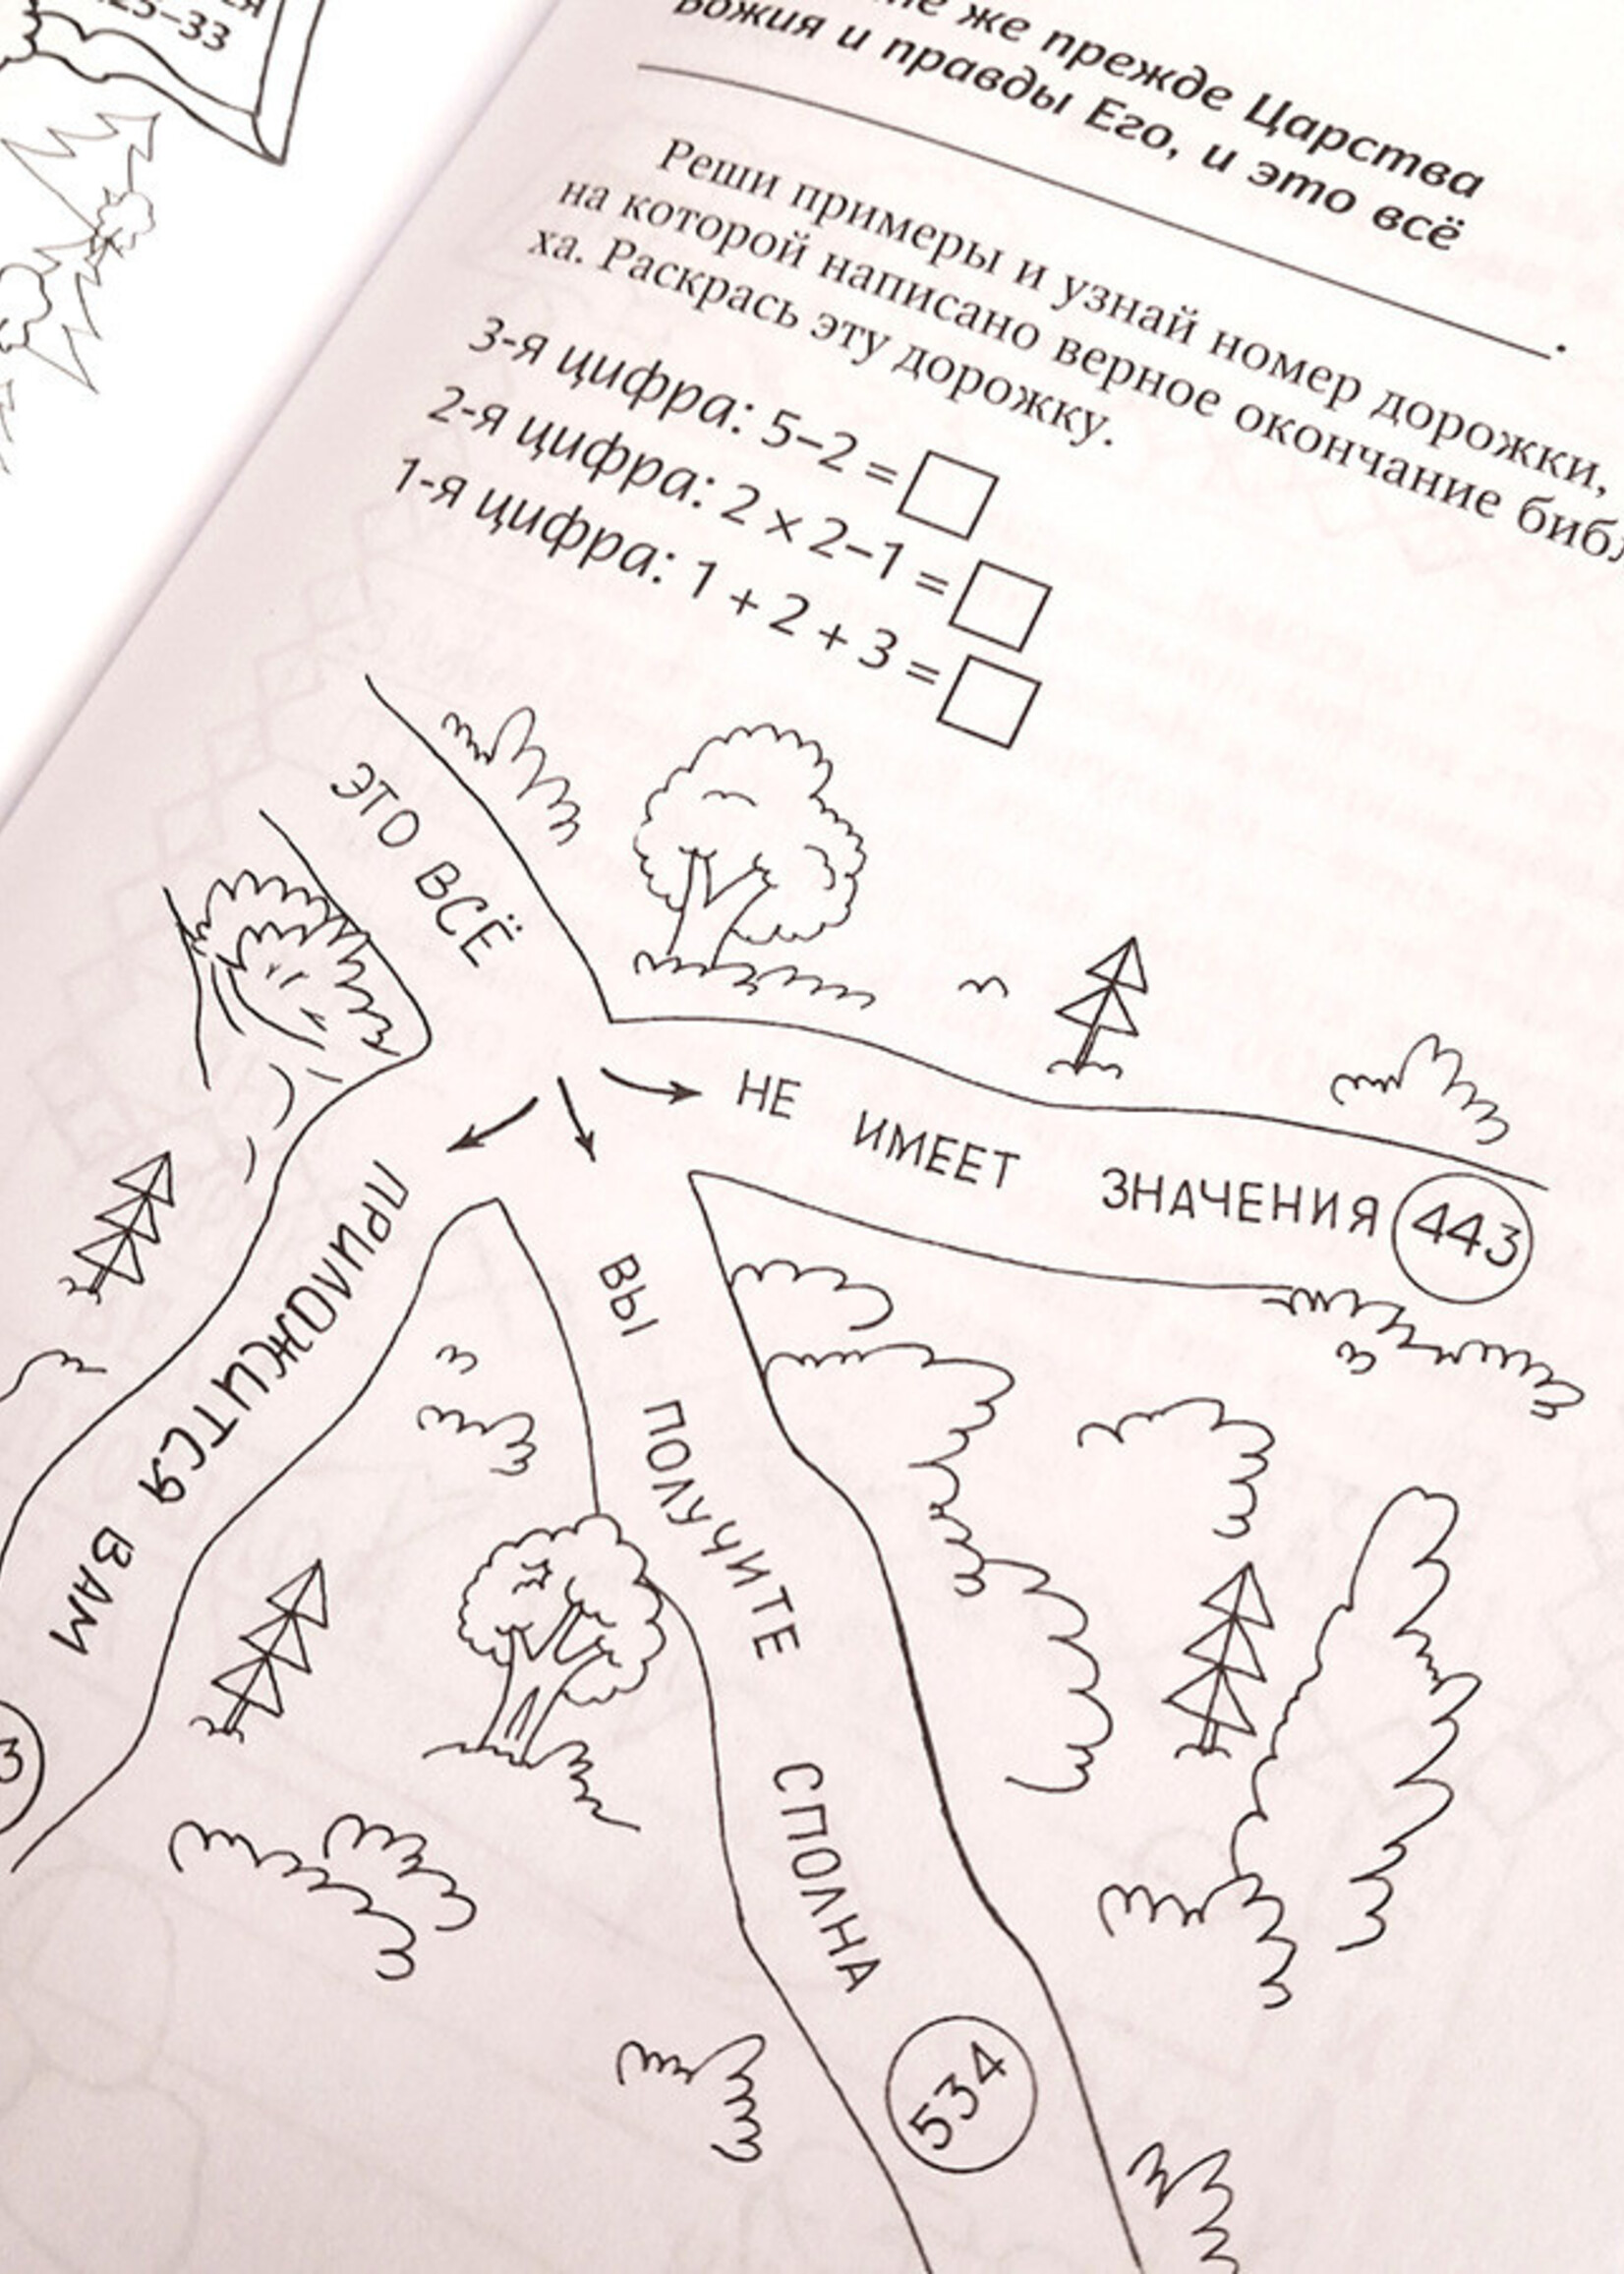 25–33
же прежде Царства
Божия и правды Его, и это всё
Реши примеры и узнай номер дорожки,
на которой написано верное окончание
ха. Раскрась эту дорожку.
3-я цифра: 5–2 =
2-я цифра: 2 × 2–1 =
1-я цифра: 1 + 2 + 3 =
ЭТО ВСЁ
НЕ ИМЕЕТ ЗНАЧЕНИЯ 443
ПРИЛОЖИТСЯ ВАМ
3
ВЫ ПОЛУЧИТЕ СПОЛНА
534